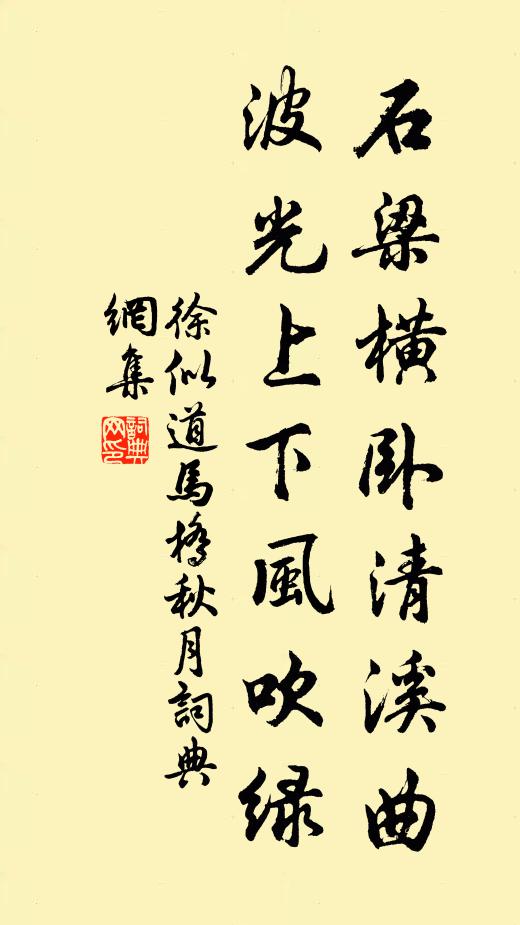 石梁橫卧清溪曲
波光上下風吹綠
徐似道馬橋秋月詞典
網集
詞典
网印